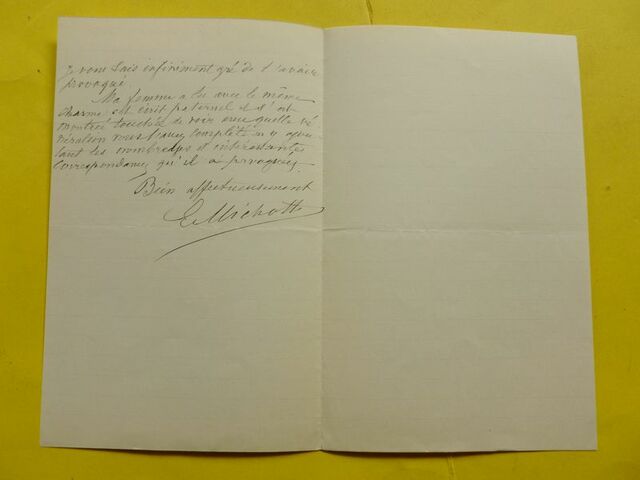 Je vous sais infiniment gré de l'avoir
provoqué.
Ma femme a lu avec le même
charme cet écrit paternel et s'est
montrée touchée de voir avec quelle vé
nération vous l'avez complété en y ajou
tant les nombreuses et intéressantes
correspondances qu'il a provoquées.
Bien affectueusement
E Michotte